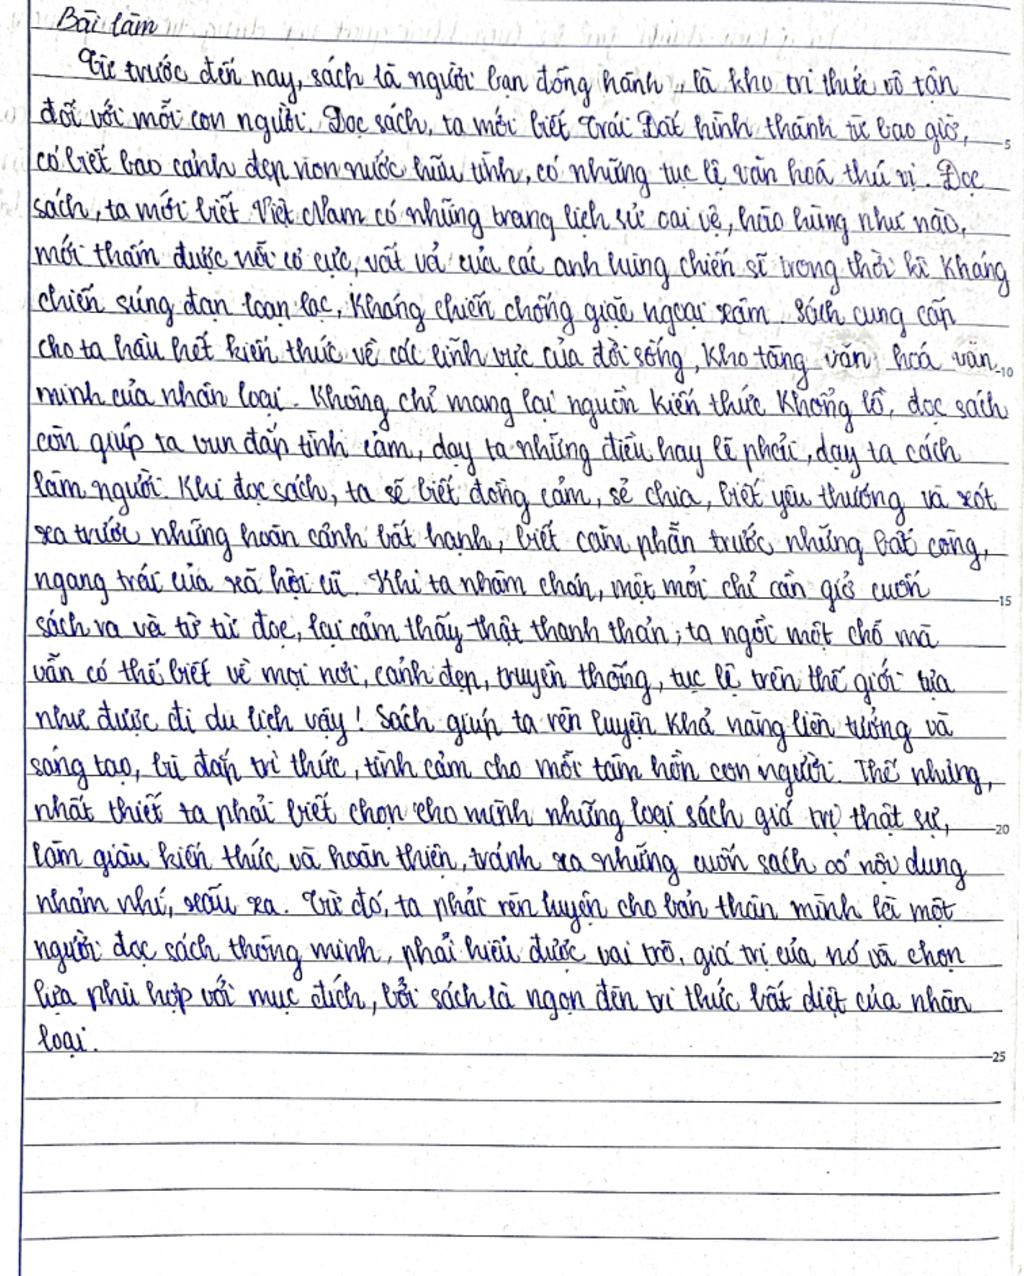 Bài làm
Từ trước đến nay, sách là người bạn đồng hành, là kho tri thức vô tận
đối với mỗi con người. Đọc sách, ta mới biết Trái Đất hình thành từ bao giờ,
có biết bao cảnh đẹp non nước hữu tình, có những tục lệ văn hoá thú vị. Đọc
sách, ta mới biết Việt Nam có những trang lịch sử oai vệ, hào hùng như nào,
mới thấm được nỗi cơ cực, vất vả của các anh hùng chiến sĩ trong thời kì kháng
chiến súng đạn loạn lạc, kháng chiến chống giặc ngoại xâm. Sách cung cấp
cho ta hầu hết kiến thức về các lĩnh vực của đời sống, kho tàng văn hoá văn
minh của nhân loại. Không chỉ mang lại nguồn kiến thức khổng lồ, đọc sách
còn giúp ta vun đắp tình cảm, dạy ta những điều hay lẽ phải, dạy ta cách
làm người. Khi đọc sách, ta sẽ biết đồng cảm, sẻ chia, biết yêu thương và xót
xa trước những hoàn cảnh bất hạnh, biết căm phẫn trước những bất công,
ngang trái của xã hội cũ. Khi ta nhàm chán, mệt mỏi chỉ cần giở cuốn
sách ra và từ từ đọc, lại cảm thấy thật thanh thản; ta ngồi một chỗ mà
vẫn có thể biết về mọi nơi, cảnh đẹp, truyền thống, tục lệ trên thế giới tựa
như được đi du lịch vậy! Sách giúp ta rèn luyện khả năng liên tưởng và
sáng tạo, bù đắp tri thức, tình cảm cho mỗi tâm hồn con người. Thế nhưng,
nhất thiết ta phải biết chọn cho mình những loại sách giá trị thật sự,
làm giàu kiến thức và hoàn thiện, tránh xa những cuốn sách có nội dung
nhảm nhí, xấu xa. Từ đó, ta phải rèn luyện cho bản thân mình là một
người đọc sách thông minh, phải hiểu được vai trò, giá trị của nó và chọn
lựa phù hợp với mục đích, bởi sách là ngọn đèn tri thức bất diệt của nhân
loại.
5
10
15
20
25